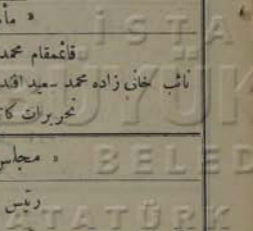 « مأ
قائممقام محمد
نائب خانی زاده محمد سعید افند
تحریرات کا
« مجلس
رئیس
İSTA
BÜYÜK
BELED
ATATÜRK